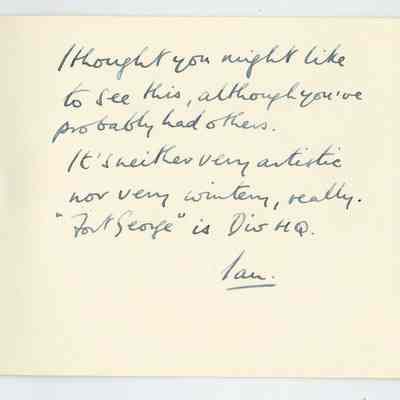 I thought you might like
to see this, although you've
probably had others.
It's neither very artistic
nor very wintery, really.
"Fort George" is Div HQ.
Ian.